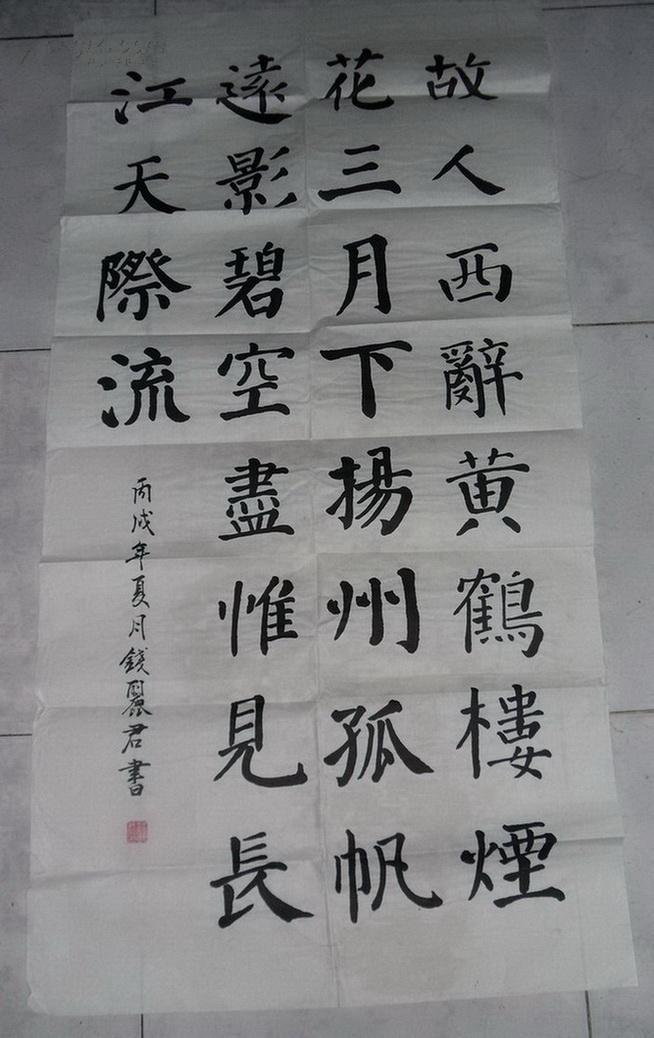 故人西辭黄鶴樓煙
花三月下揚州孤帆
遠影碧空盡惟見長
江天際流
丙戌年夏月錢麗君書